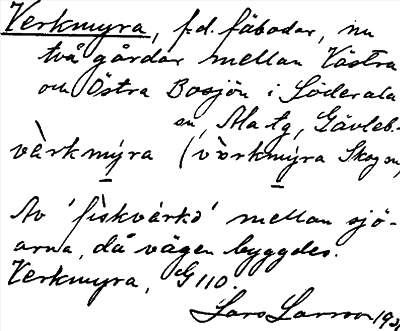 Verkmyra, f.d. fäbodar, nu
två gårdar mellan Västra
och Östra Bosjön i Söderala
sn, Ala tg, Gävleb.
vàrkmýra (vòrkmýra Skog sn)
Av 'fiskvärkə' mellan sjö-
arna, då vägen byggdes.
Verkmyra, G 110.
Lars Larsson 193